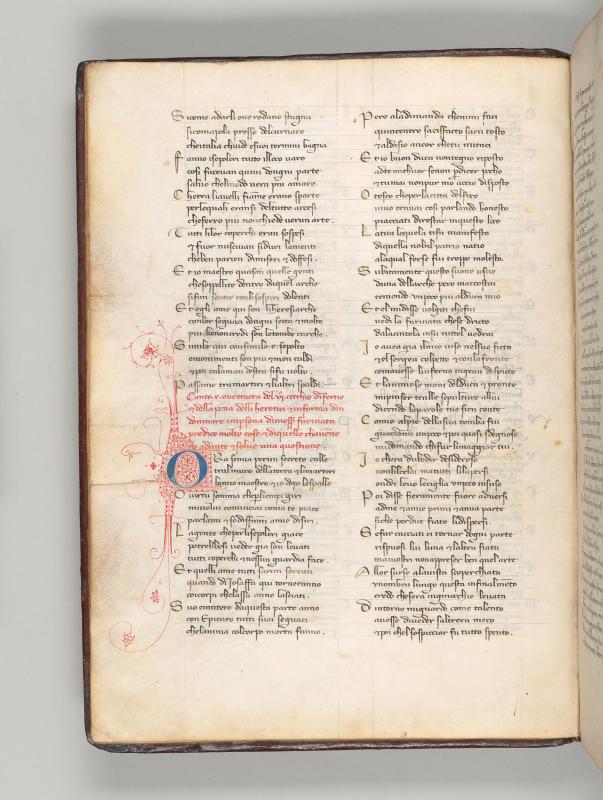 Sicome adarli oue rodano stagna
sicomapola presso delcarnaro
cheitalia chiude esuoi termini bagna
Fanno isepolcri tutto illoco uaro
cosi faceuan quiui dongni parte
saluo chelmodo uera piu amaro
Chetra liauelli fiame erano sparte
perlequali eransi deltutto accesi
cheferro piu nonchiede uerun arte.
Tutti lilor coperchi eran sospesi
& fuor nusciuan siduri lamenti
cheben parien dimiseri & doffesi.
Et io maestro quason quelle genti
chesoppellite dentro daquel arche
sifan sentir conlisospiri dolenti
Et egli ame qui son liheresiarche
conlor seguaci dongni setta & molto
piu chenoncredi son letombe carche.
Simile qui consimile e sepolto
emonimenti son piu & men caldi
& poi calaman destra sifu uolto.
Passamo tramartiri & lialtri spaldi.
Canto .x. oue tratta del .vi. cerchio dinferno
& della pena delli heretici & informa din
douinare impersona dimess farinata
predice molte cose & diquelle chauenne
ro adante & solue una questione.
Ora senua perun secreto calle
tralmuro dellaterra & limartiri
lomio maestro & io dopo lespalle
O uirtu somma cheperlempi giri
miuolui cominciai coma te piace
parlami & sodisfammi amie disiri.
La gente cheperlisepolcri giace
potrebbesi ueder gia son leuati
tutti coperchi & nessun guardia face.
Et quelli ame tutti saran serrati
quando di Josaffa qui torneranno
coicorpi chelassu anno lasciati.
Suo cimitero daquesta parte anno
con Epicuro tutti suoi seguaci
chelanima colcorpo morta fanno.
Pero aladimanda chemmi faci
quincentro sacisfacto sara tosto
& aldisio ancor chetu mitaci
Et io buon duca nontegno riposto
adte miocuor senon perdicer pocho
& tumai nonpur mo accio disposto
O tosco cheperlacitta delfoco
uiuo tenuai cosi parlando honesto
piacciati direstar inquesto loco
La tua loquela tifa manifesto
diquella nobil patria natio
alaqual forse fui troppo molesto.
Subitamente questo suono uscio
duna dellarche pero maccostai
temendo unpoco piu alduca mio
Et el midisse uolgiti chefai
uedi la farinata chese dritto
dalacintola insu tuttol uedrai
Io auea gia ilmio uiso nelsuo fitto
& el sergea colpetto & conlafronte
comauesse lonferno ingran dispitto
Et lanimose man delduca & pronte
mipinser tralle sepulture allui
dicendo leparole tue sien conte
Comio alpie dellasua tomba fui
guardomi unpoco & poi quasi sdegnoso
midimando chifur limaggior tui.
Io chera dubidir desideroso
nonlilcelai matutti lilapersi
ondei leuo leciglia unpoco insuso
Poi disse fieramente furo aduersi
adme & amie primi & amia parte
siche perdue fiate lidispersi.
Sefur cacciati ei tornar dogni parte
rispuosi lui luna & laltra fiata
maiuostri nonappreser ben quel arte
Allor surse alauista scoperchiata
unombra lungo questa infinalmento
credo chesera inginocchie leuata
Dintorno miguardo come talento
auesse diueder saltrera meco
& poi chel sospicciar fu tutto spento.